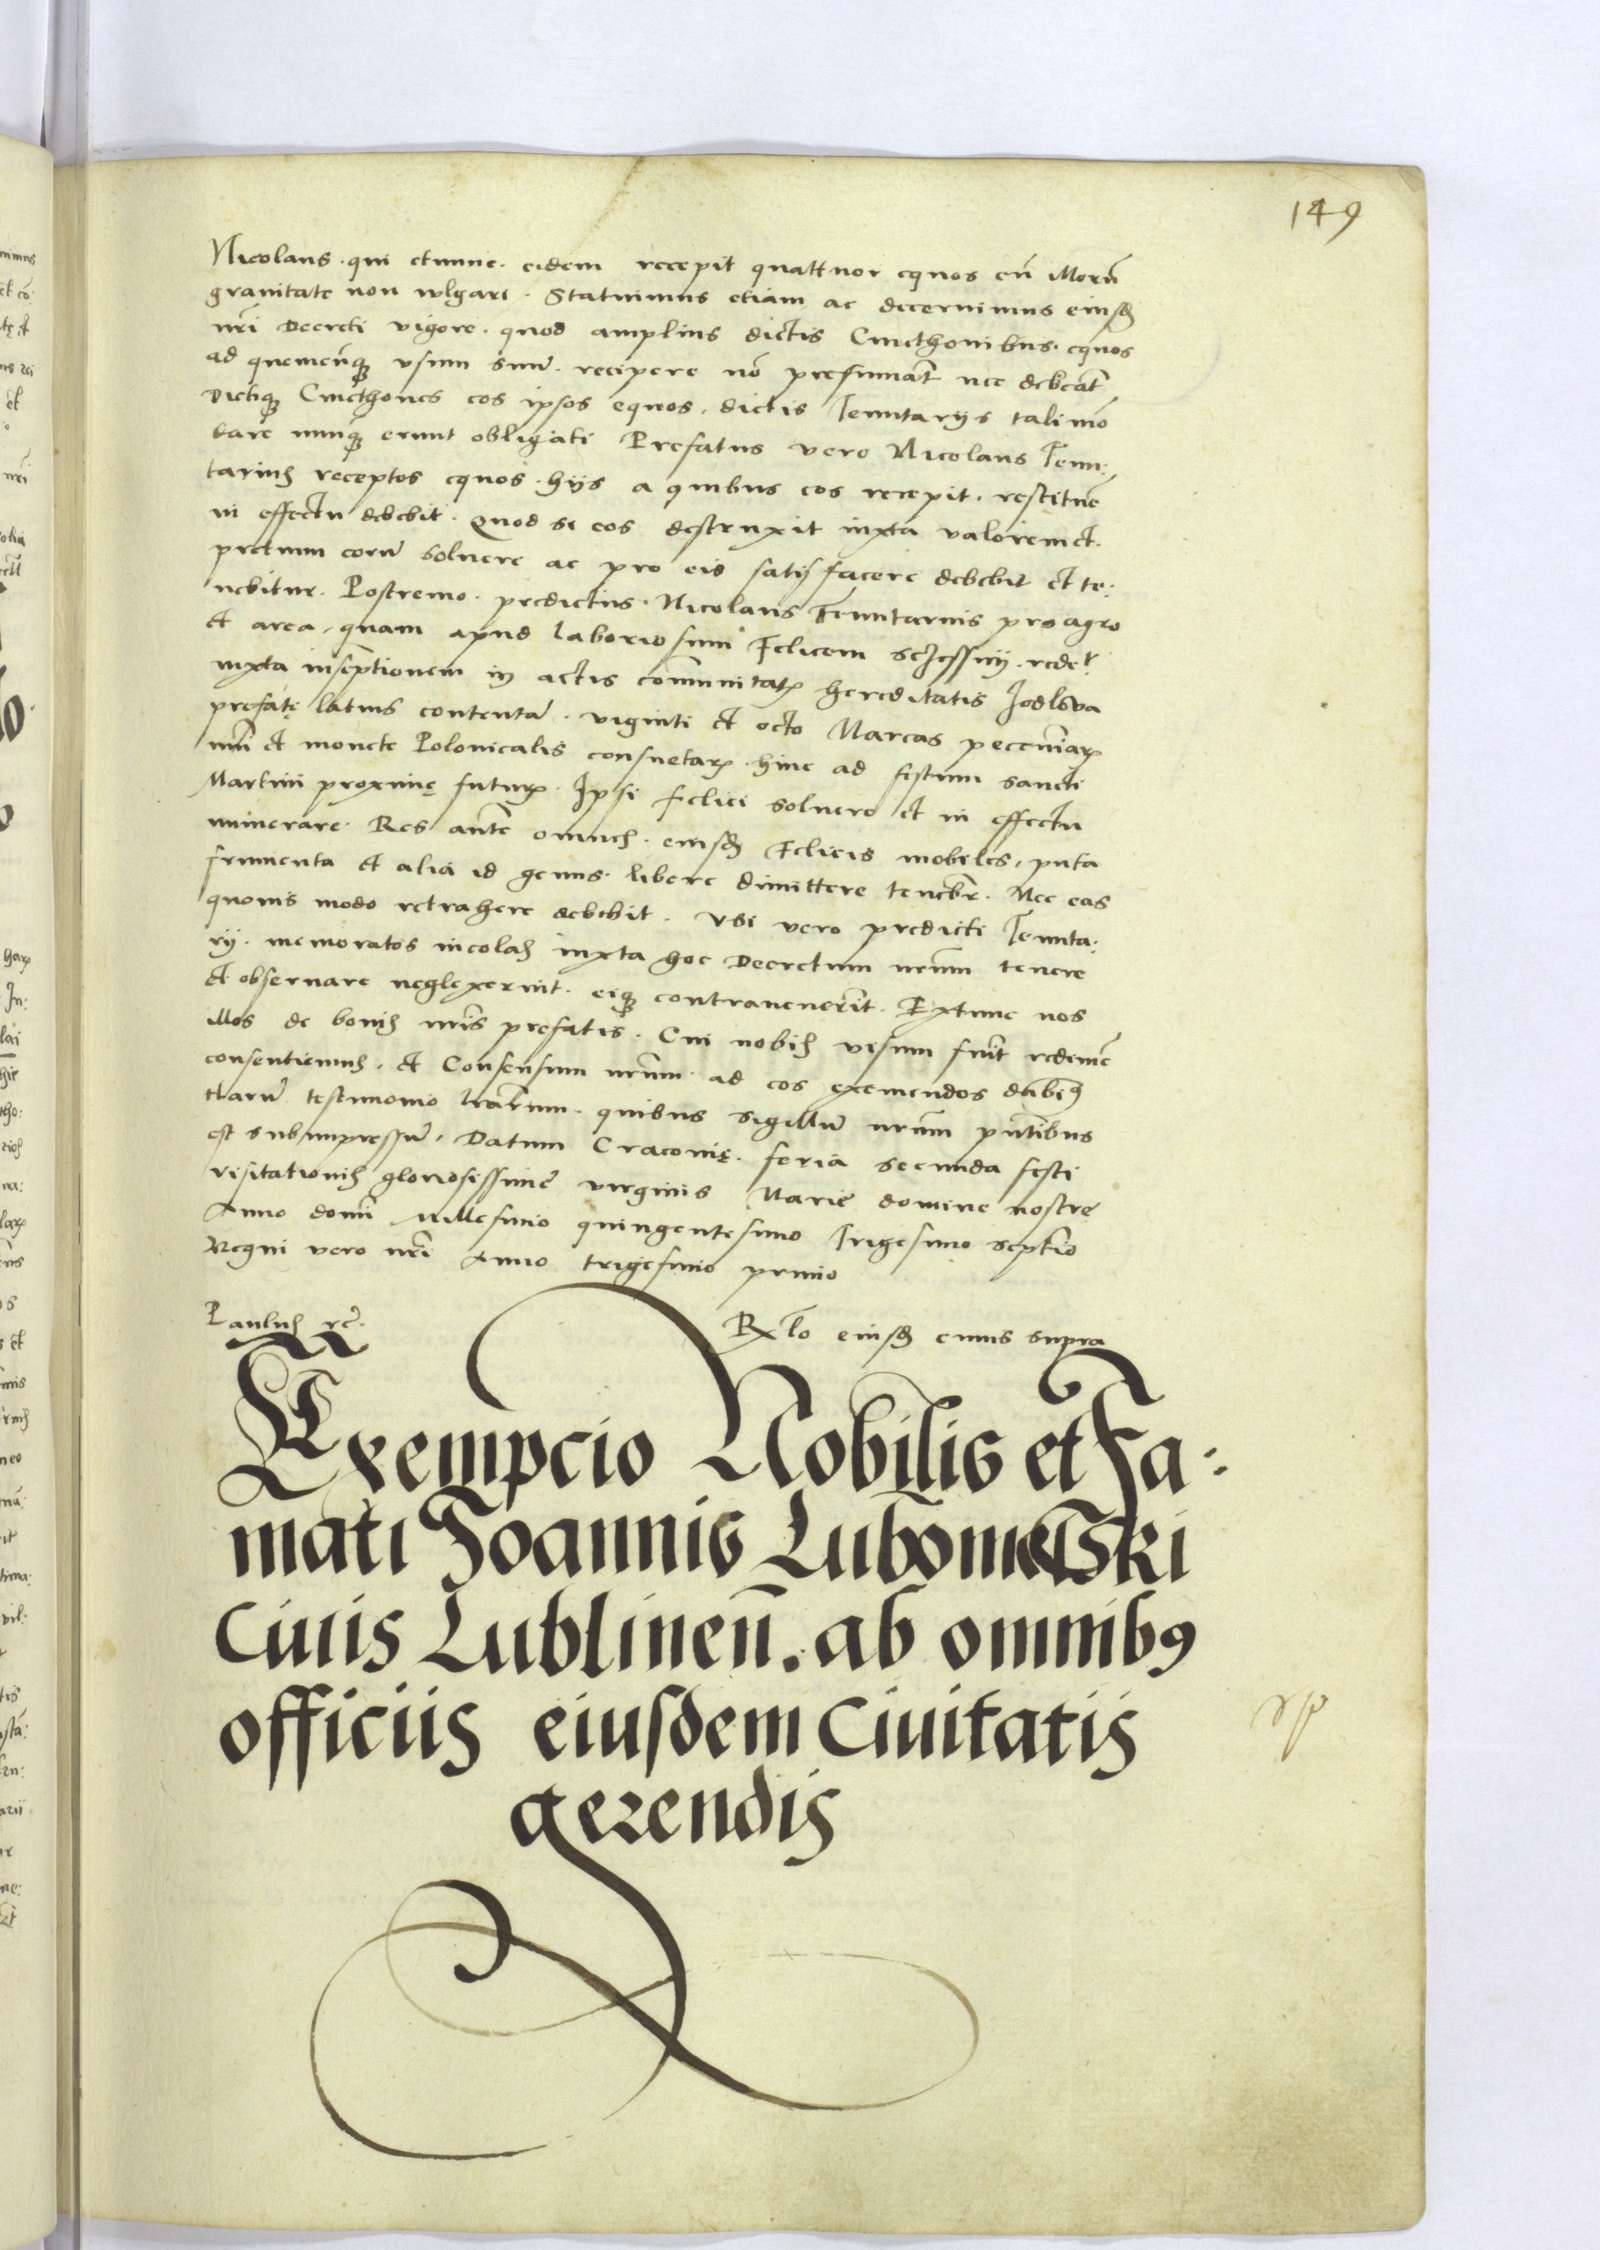 149
Nicolaus · qui etiunc · eidem recepit quattuor equos cū illorū
grauitate non vulgari · Statuimus etiam ac decernimus eiusdē
nr̄i Decreti vigore · quod amplius dictis Cmethonibus · equos
ad quemcūqȝ vsum suū · recipere nō presumāt nec debeāt
Dictiqȝ Cmethones eos ipsos equos · dictis Tenutarijs tali mō
dare nunqȝ erunt obligati Prefatus vero Nicolaus Tenu:
tarius receptos equos · hijs a quibus eos recepit · restituē
in effectu debebit · Quod si eos destruxit iuxta valorem et ·
pretium eorū soluere ac pro eis satisfacere debebit et te:
nebitur · Postremo · predictus · Nicolaus Tenutarius pro agro
et area · quam apud laboriosum Felicem
iuxta inscptionem in actis cōmunitatꝝ hereditatis Jodlowa
prefatę latius contentā · viginti et octo Marcas pecuniaꝝ
nūi et monete Polonicalis consuetaꝝ · hinc ad festum sancti
Martini proximę futuꝝ · Ipsi felici soluere et in effectu
numerare · Res autē omnes · eiusdē Felicis mobiles, puta
frumenta et alia id genus · libere dimittere tenebr̄ · Nec eas
quouis modo retrahere debebit · Vbi vero predicti Tenuta:
rij · memoratos incolas iuxta hoc Decretum nr̄um tenere
et obseruare neglexerint · eiqȝ contrauenerīt · Extunc nos
illos de bonis nr̄is prefatis · Cui nobis visum fuīt redimē
consentiemus · et Consensum nr̄um · ad eos eximendos dabimꝰ
Harū testimonio lr̄arum · quibus sigillū nr̄um pn̄tibus
est subimpressū · Datum Cracouię · feria secunda festi
visitationis gloriosissimę virginis Marię domine nostrę
Anno domī Millesimo quingentesimo Trigesimo septīo
Regni vero nr̄i Anno trigesimo primo
Paulus
Rlo eiusdē cuius supra
Exempcio Nobilis et Fa:
mati Joannis Lubomelski
Ciuis Lublineñ. ab omnibꝰ
officiis eiusdem Ciuitatis
gerendis